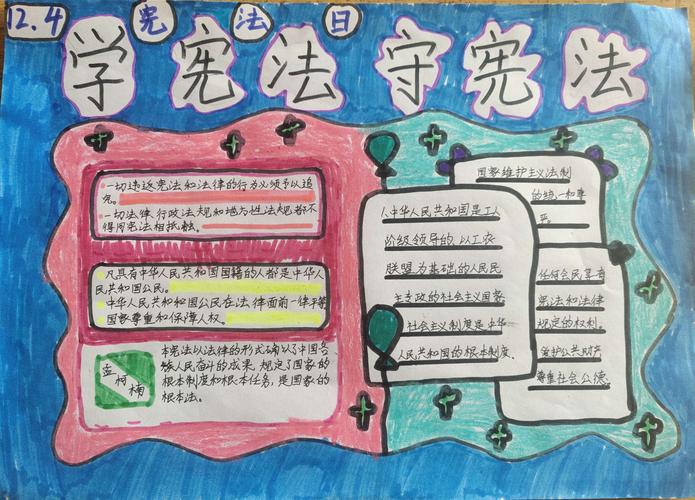 12.4 宪法日
学宪法 守宪法
一切违返宪法和法律的行为必须予以追
究。
一切法律、行政法规和地方性法规都不
得同宪法相抵触。
凡具有中华人民共和国国籍的人都是中华人
民共和国公民。
中华人民共和和国公民在法律面前一律平等
国家尊重和保障人权。
孟柯楠
本宪法以法律的形式确认了中国各
族人民奋斗的成果,规定了国家的
根本制度和根本任务,是国家的
根本法。
人中华人民共和国是工人
阶级领导的,以工农
联盟为基础的人民民
主专政的社会主义国家
社会主义制度是中华
人民共和国的根本制度.
国家维护主义法制
的统一和尊
严
任何会民享有
宪法和法律
规定的权利。
爱护公共财产
尊重社会公德